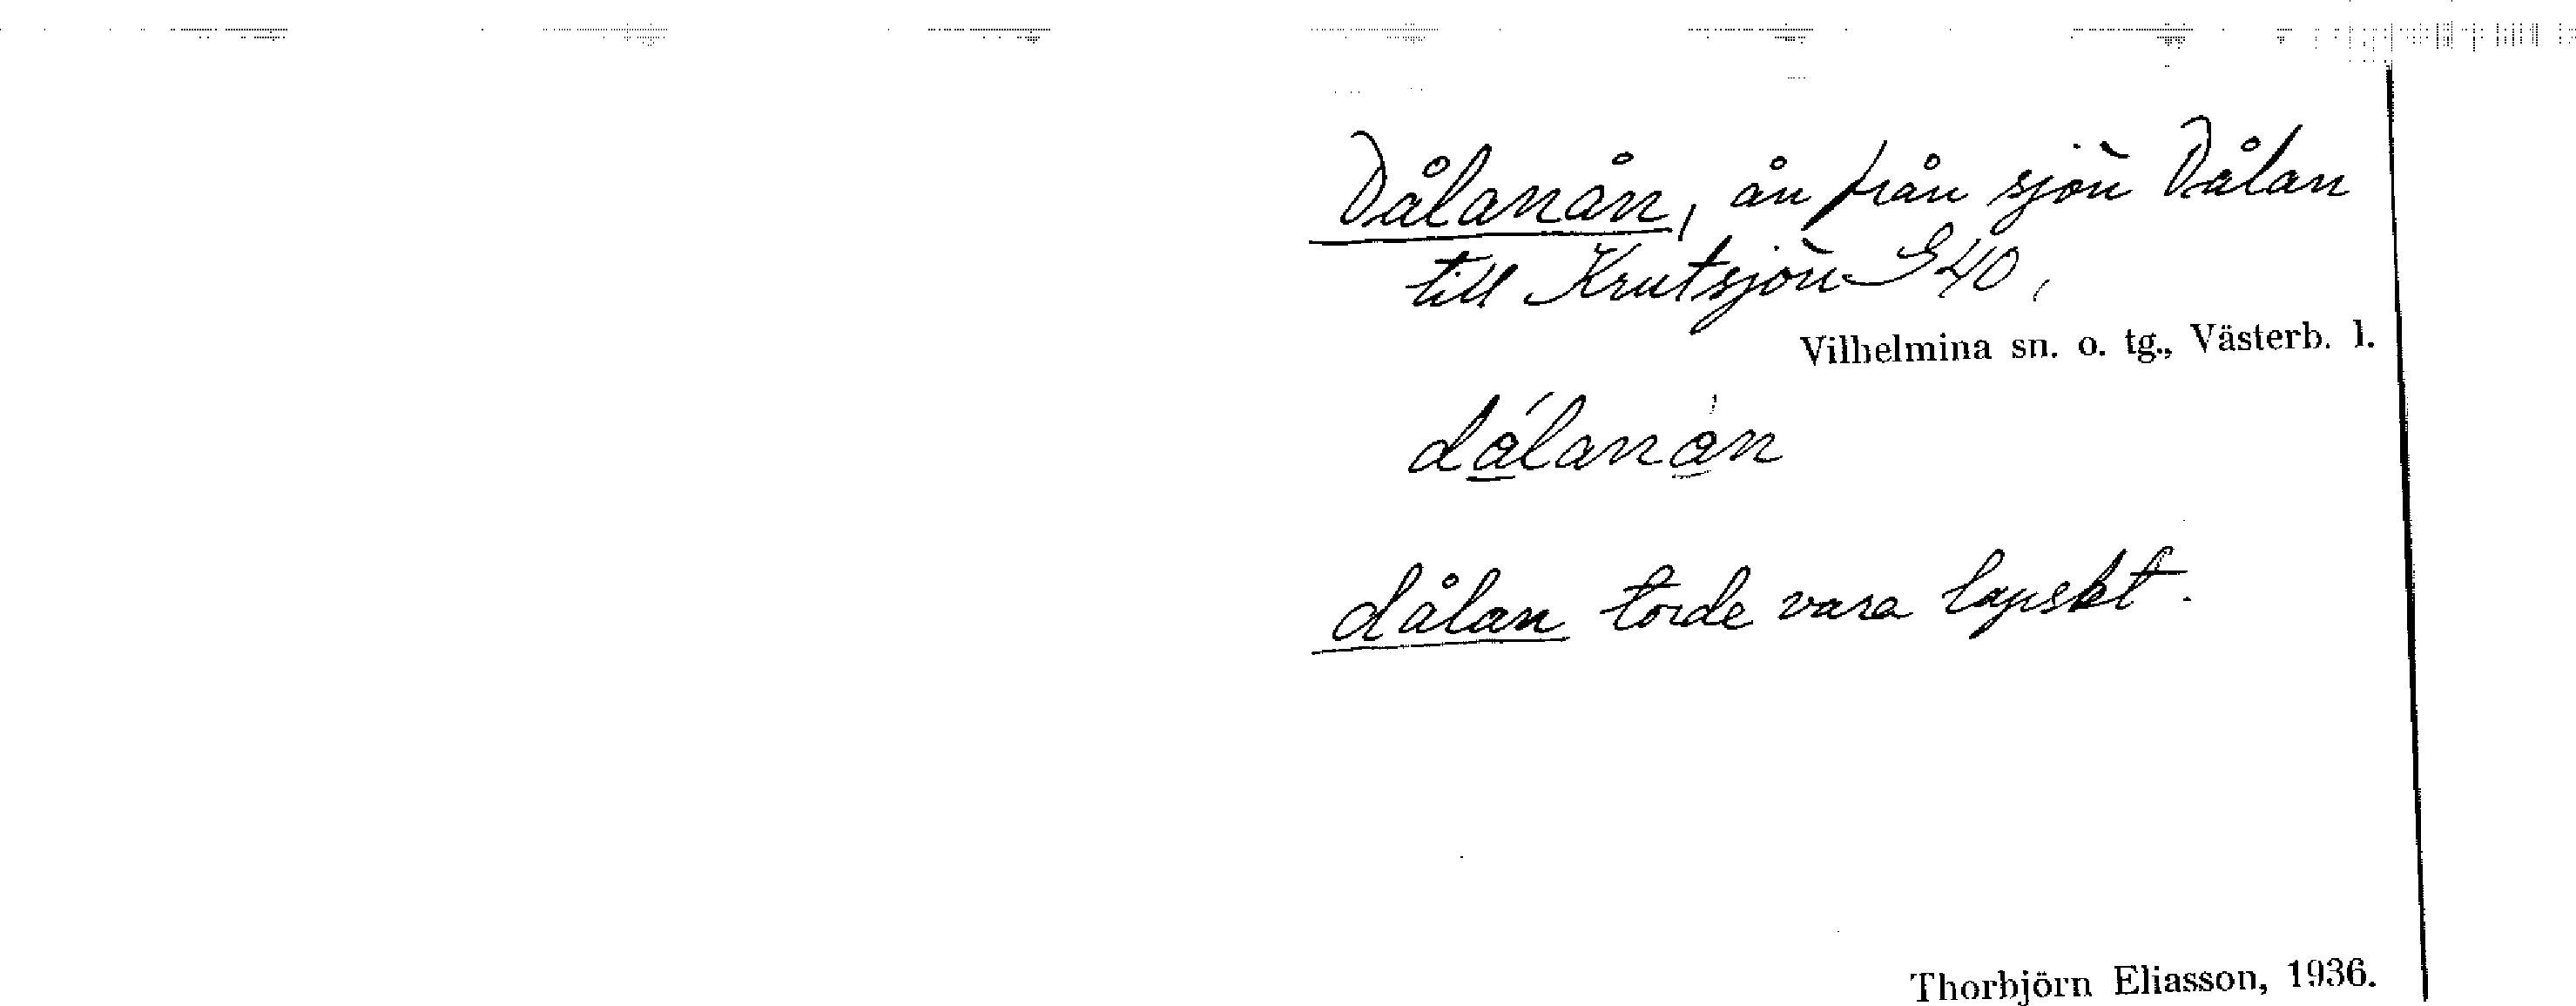 Dålanån, ån från sjön Dålan
till Krutsjön G40,
Vilhelmina sn. o. tg., Västerb. l.
dálanàn
dålan torde vara lapskt.
Thorbjörn Eliasson, 1936.